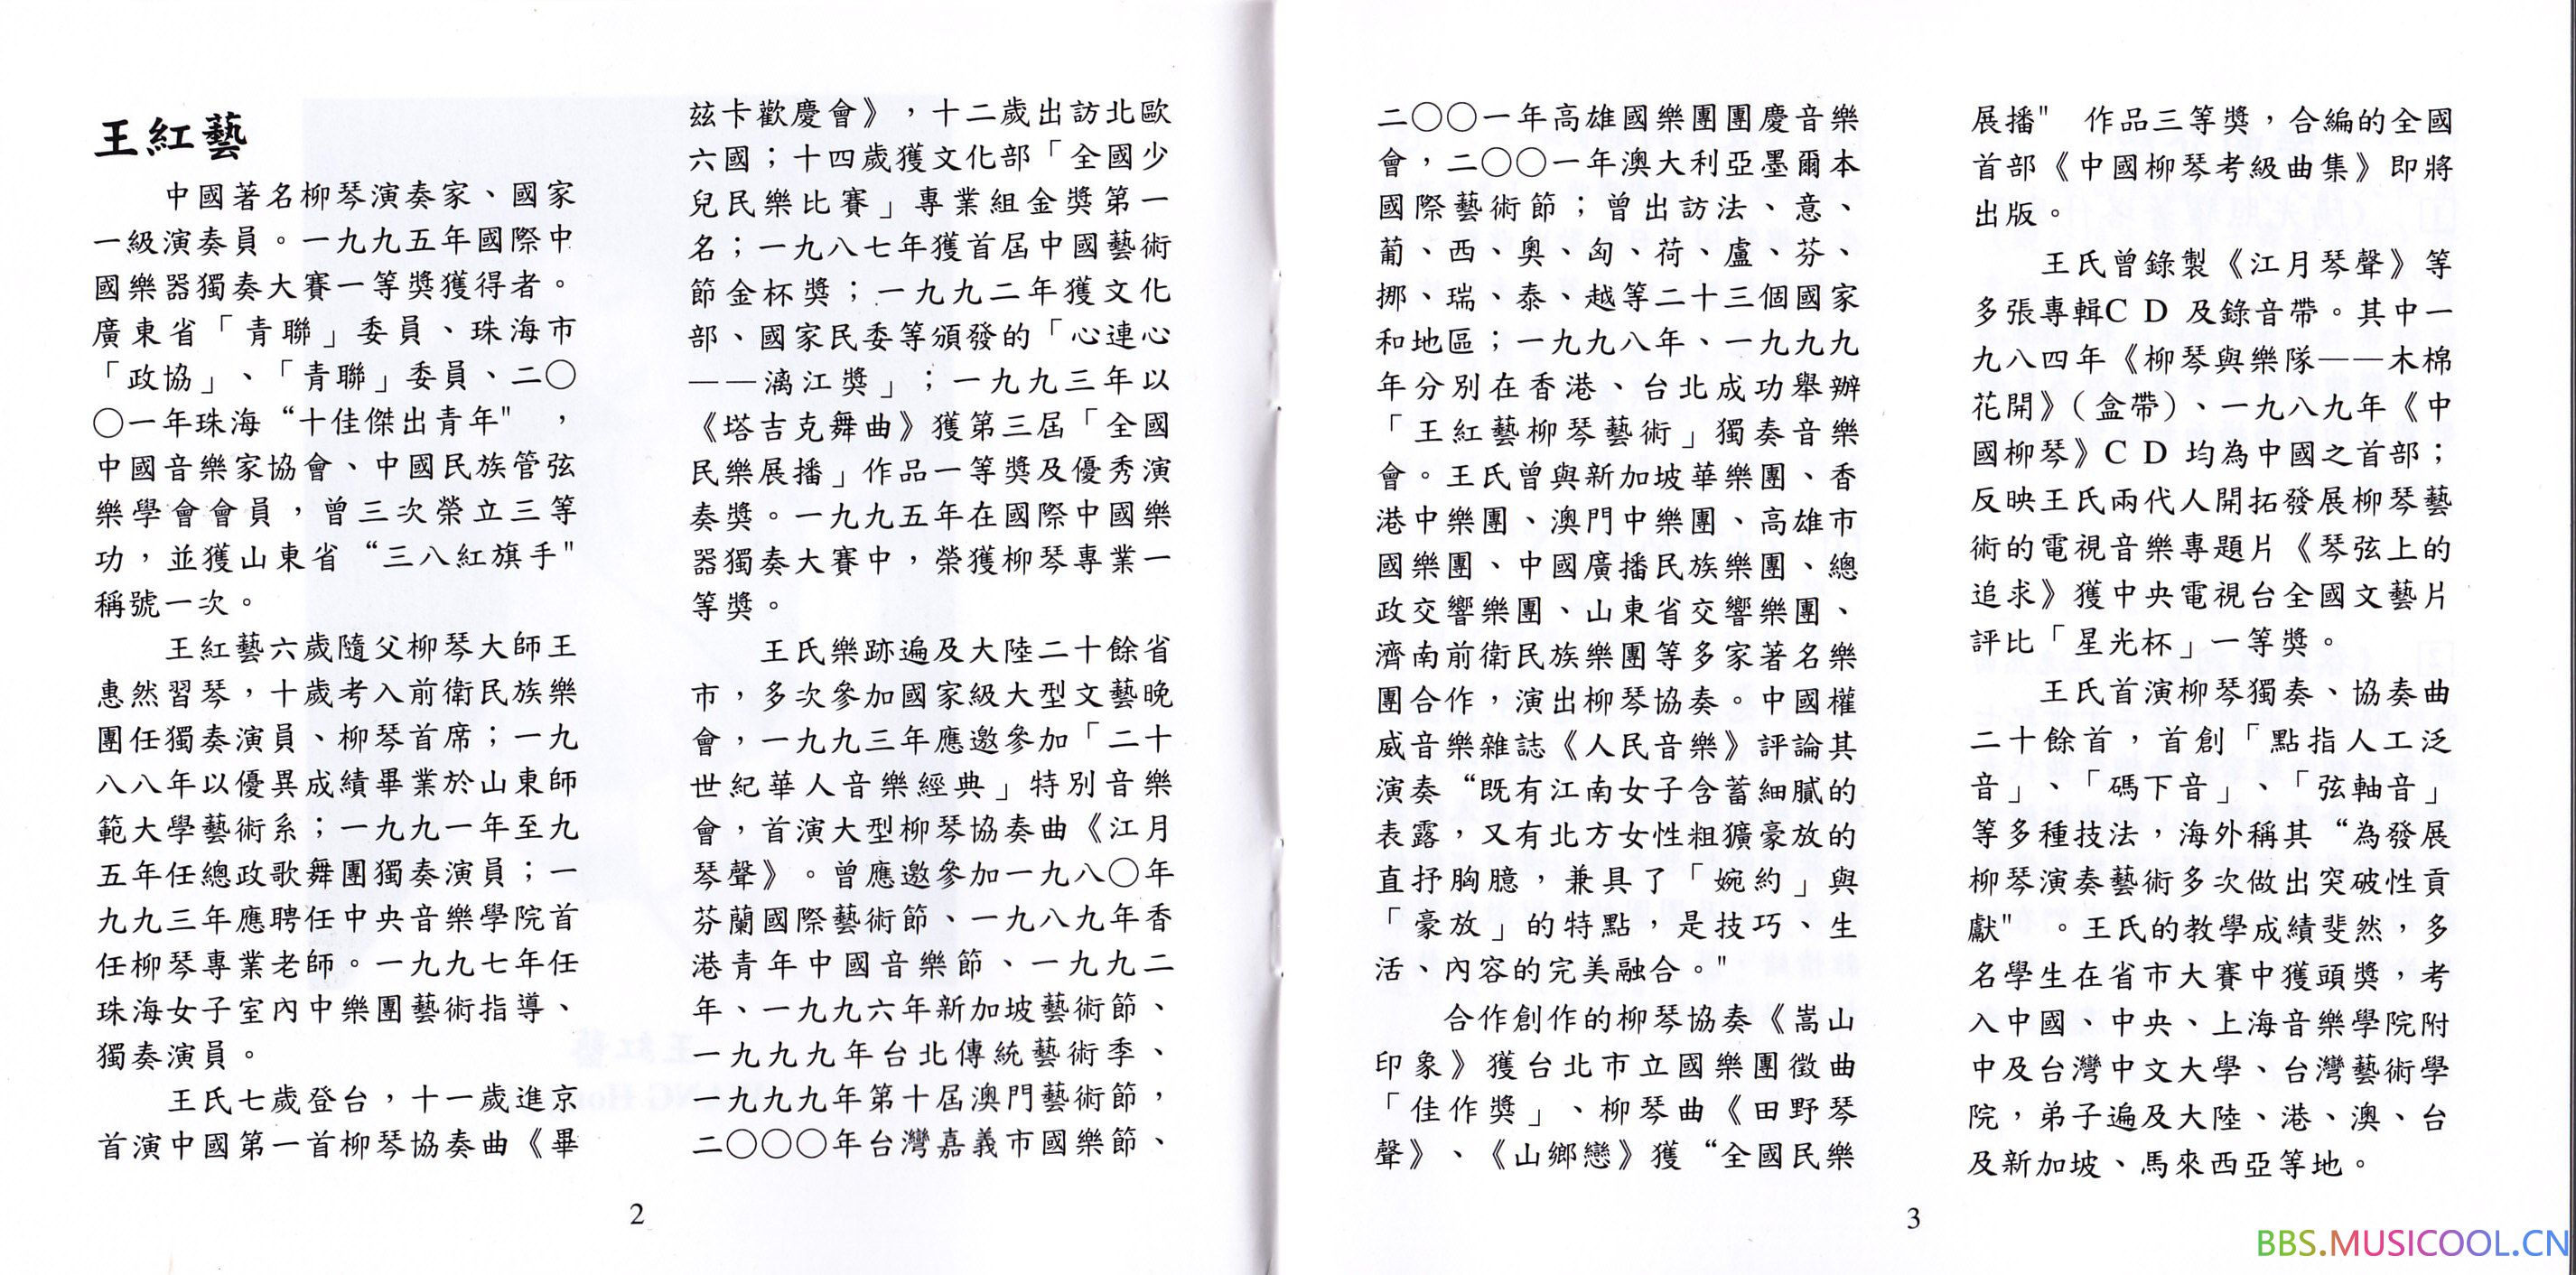 王紅藝
中國著名柳琴演奏家、國家
一級演奏員。一九九五年國際中
國樂器獨奏大賽一等獎獲得者。
廣東省「青聯」委員、珠海市
「政協」、「青聯」委員、二〇
〇一年珠海“十佳傑出青年"，
中國音樂家協會、中國民族管弦
樂學會會員，曾三次榮立三等
功，並獲山東省“三八紅旗手"
稱號一次。
王紅藝六歲隨父柳琴大師王
惠然習琴，十歲考入前衛民族樂
團任獨奏演員、柳琴首席；一九
八八年以優異成績畢業於山東師
範大學藝術系；一九九一年至九
五年任總政歌舞團獨奏演員；一
九九三年應聘任中央音樂學院首
任柳琴專業老師。一九九七年任
珠海女子室內中樂團藝術指導、
獨奏演員。
王氏七歲登台，十一歲進京
首演中國第一首柳琴協奏曲《畢
茲卡歡慶會》，十二歲出訪北歐
六國；十四歲獲文化部「全國少
兒民樂比賽」專業組金獎第一
名；一九八七年獲首屆中國藝術
節金杯獎；一九九二年獲文化
部、國家民委等頒發的「心連心
——漓江獎」；一九九三年以
《塔吉克舞曲》獲第三屆「全國
民樂展播」作品一等獎及優秀演
奏獎。一九九五年在國際中國樂
器獨奏大賽中，榮獲柳琴專業一
等獎。
王氏樂跡遍及大陸二十餘省
市，多次參加國家級大型文藝晚
會，一九九三年應邀參加「二十
世紀華人音樂經典」特別音樂
會，首演大型柳琴協奏曲《江月
琴聲》。曾應邀參加一九八〇年
芬蘭國際藝術節、一九八九年香
港青年中國音樂節、一九九二
年、一九九六年新加坡藝術節、
一九九九年台北傳統藝術季、
一九九九年第十屆澳門藝術節，
二〇〇〇年台灣嘉義市國樂節、
2
二〇〇一年高雄國樂團團慶音樂
會，二〇〇一年澳大利亞墨爾本
國際藝術節；曾出訪法、意、
葡、西、奧、匈、荷、盧、芬、
挪、瑞、泰、越等二十三個國家
和地區；一九九八年、一九九九
年分別在香港、台北成功舉辦
「王紅藝柳琴藝術」獨奏音樂
會。王氏曾與新加坡華樂團、香
港中樂團、澳門中樂團、高雄市
國樂團、中國廣播民族樂團、總
政交響樂團、山東省交響樂團、
濟南前衛民族樂團等多家著名樂
團合作，演出柳琴協奏。中國權
威音樂雜誌《人民音樂》評論其
演奏“既有江南女子含蓄細膩的
表露，又有北方女性粗獷豪放的
直抒胸臆，兼具了「婉約」與
「豪放」的特點，是技巧、生
活、內容的完美融合。"
合作創作的柳琴協奏《嵩山
印象》獲台北市立國樂團徵曲
「佳作獎」、柳琴曲《田野琴
聲》、《山鄉戀》獲“全國民樂
展播" 作品三等獎，合編的全國
首部《中國柳琴考級曲集》即將
出版。
王氏曾錄製《江月琴聲》等
多張專輯CD 及錄音帶。其中一
九八四年《柳琴與樂隊——木棉
花開》（盒帶）、一九八九年《中
國柳琴》CD 均為中國之首部；
反映王氏兩代人開拓發展柳琴藝
術的電視音樂專題片《琴弦上的
追求》獲中央電視台全國文藝片
評比「星光杯」一等獎。
王氏首演柳琴獨奏、協奏曲
二十餘首，首創「點指人工泛
音」、「碼下音」、「弦軸音」
等多種技法，海外稱其“為發展
柳琴演奏藝術多次做出突破性貢
獻" 。王氏的教學成績斐然，多
名學生在省市大賽中獲頭獎，考
入中國、中央、上海音樂學院附
中及台灣中文大學、台灣藝術學
院，弟子遍及大陸、港、澳、台
及新加坡、馬來西亞等地。
3
BBS.MUSICOOL.CN